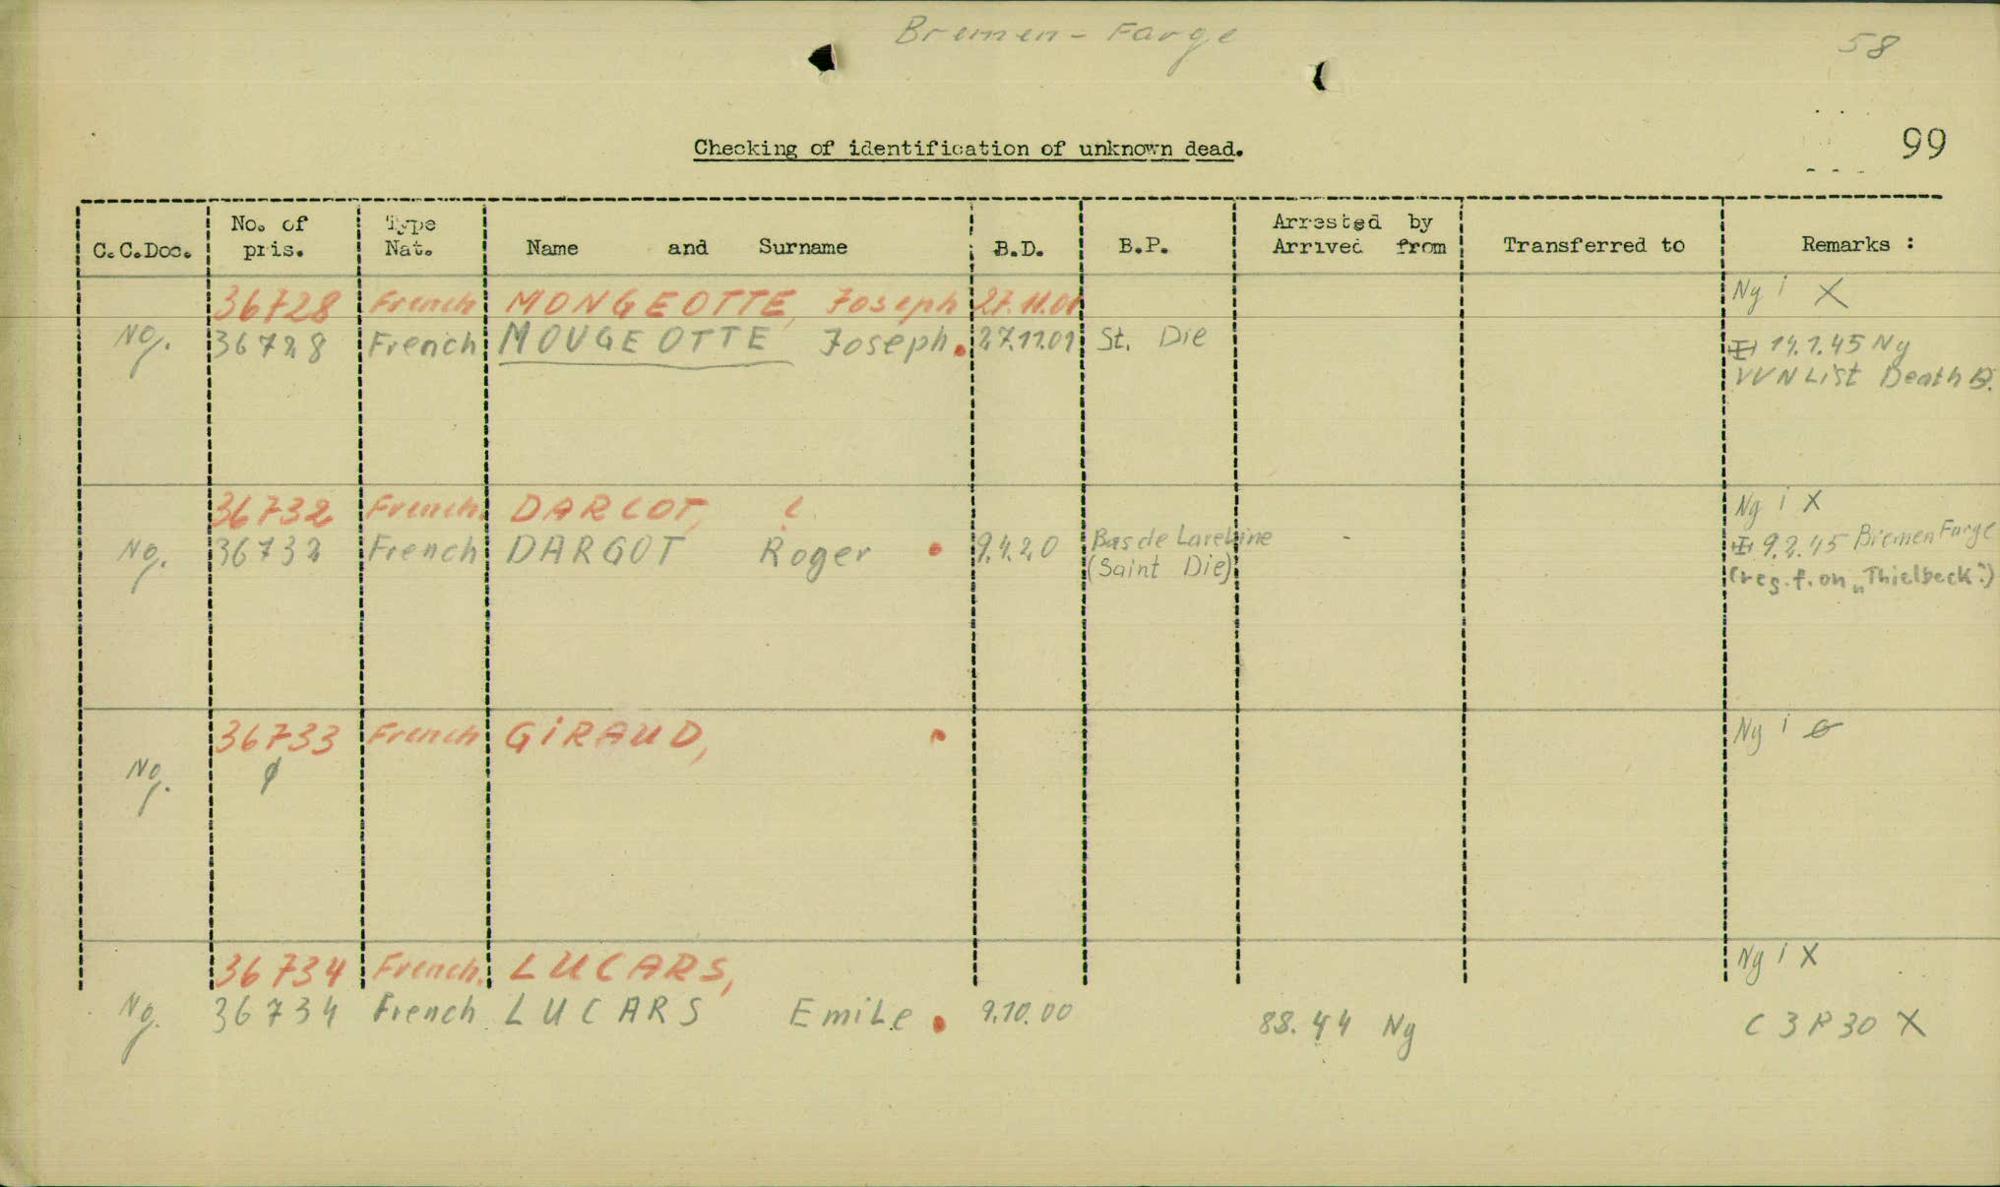 Bremen-Farge
58
Checking of identification of unknown dead.
99
C.C.Doc. No. of pris. Type Nat. Name and Surname B.D. B.P. Arrested by Arrived from Transferred to Remarks :
36728 French MONGEOTTE, Joseph 27.11.01 Ng i X
Ng. 36728 French MOUGEOTTE Joseph. 27.11.01 St. Die 14.1.45 Ng
VVN List Death B.
36732 French. DARCOT, Ng i X
Ng. 36732 French DARGOT Roger 9.4.20 Bas de - 9.2.45 Bremen Farge
(Saint Die) (res. f. on „Thielbeck")
36733 French GIRAUD, Ng i
Ng.
36734 French. LUCARS, Ng i X
Ng. 36734 French LUCARS Emile. 9.10.00 88.44 Ng C 3 R 30 X